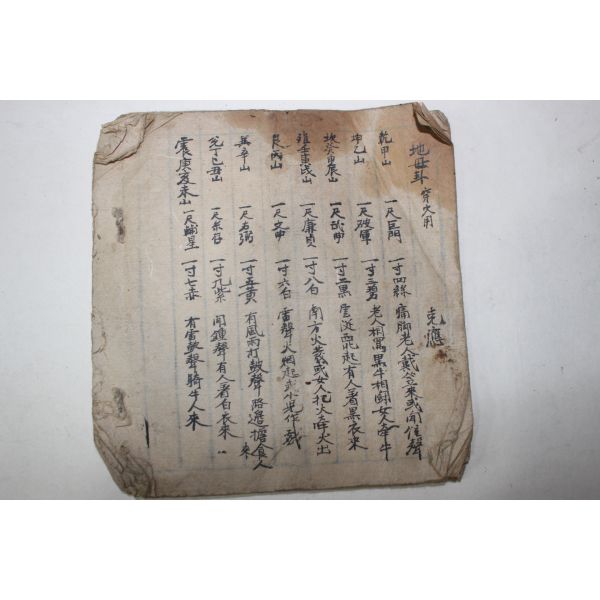 地母卦 穿穴用 克應
乾甲山 一尺巨門 一寸四綠 痛脚老人戴笠來或聞信聲
坤乙山 一尺破軍 一寸三碧 老人相罵黑牛相鬪女人牽牛
坎癸申辰山 一尺武曲 一寸二黑 雲從西北起有人着黑衣來
離壬寅戌山 一尺廉貞 一寸八白 南方火發或女人把火牽火出
艮丙山 一尺文曲 一寸六白 雷聲火烟起或小兒作戱
巽辛山 一尺右弼 一寸五黃 有風雨打鼓聲路邊擔食人來
兌丁巳丑山 一尺 一寸九紫 聞鍾聲有人着白衣來
震庚亥未山 一尺 一寸七赤 有雷鼓聲騎牛人來